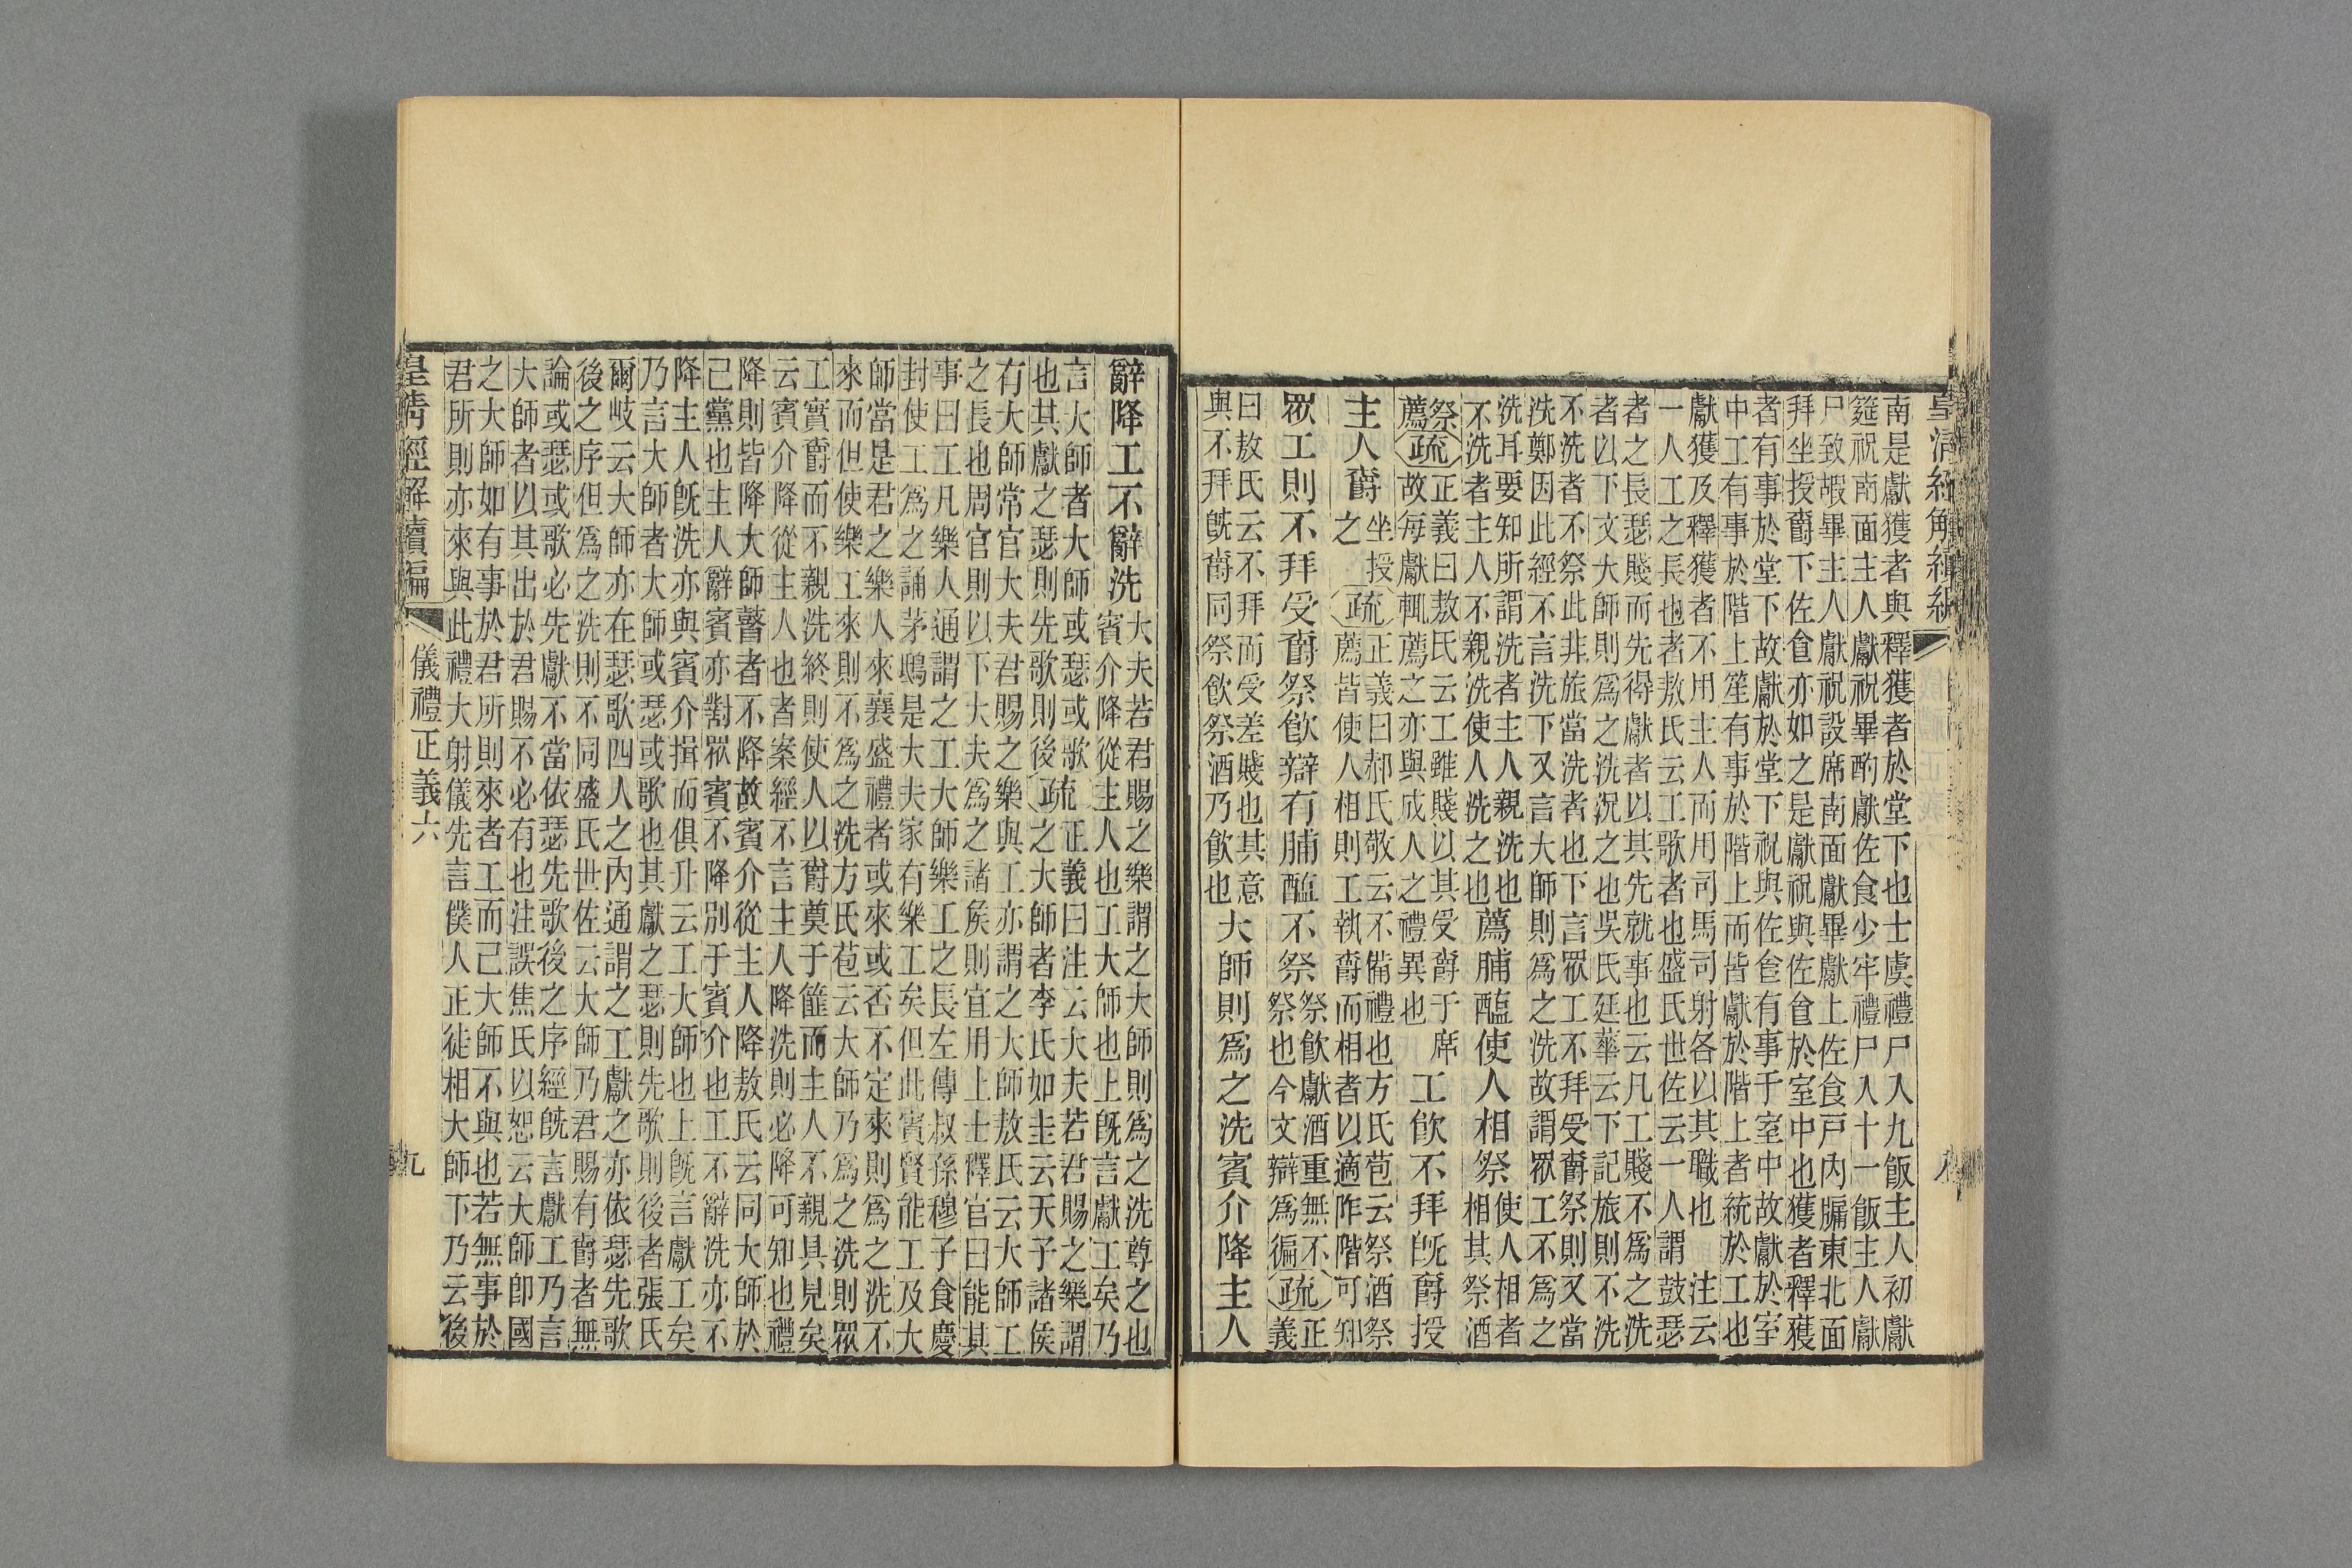 皇清經解續編
八
南是獻獲者與釋獲者於堂下也士虞禮尸入九飯主人初獻
筵祝南面主人獻祝畢酌獻佐食少牢禮尸入十一飯主人獻
尸致嘏畢主人獻祝設席南面獻畢獻上佐食戶內牖東北面
拜坐授爵下佐食亦如之是獻祝與佐食於室中也獲者釋獲
者有事於堂下故獻於堂下祝與佐食有事于室中故獻於室
中工有事於階上笙有事於階上而皆獻於階上者統於工也
獻獲及釋獲者不用主人而用司馬司射各以其職也　注云
一人工之長也者敖氏云工歌者也盛氏世佐云一人謂鼓瑟
者之長瑟賤而先得獻者以其先就事也云凡工賤不爲之洗
者以下文大師則爲之洗況之也吳氏廷華云下記旅則不洗
不洗者不祭此非旅當洗者也下言眾工不拜受爵祭則又當
洗鄭因此經不言洗下又言大師則爲之洗故謂眾工不爲之
洗耳要知所謂洗者主人親洗也
不洗者主人不親洗使人洗之也
薦脯醢使人相祭
使人相者
相其祭酒
祭
薦
疏
正義曰敖氏云工雖賤以其受爵于席
故每獻輒薦之亦與成人之禮異也
工飲不拜既爵授
主人爵
坐授
之
疏
正義曰郝氏敬云不備禮也方氏苞云祭酒祭
薦皆使人相則工執爵而相者以適阼階可知
眾工則不拜受爵祭飲辯有脯醢不祭
祭飲獻酒重無不
祭也今文辯爲徧
疏
正
義
曰敖氏云不拜而受差賤也其意
與不拜既爵同祭飲祭酒乃飲也
大師則爲之洗賓介降主人
辭降工不辭洗
大夫若君賜之樂謂之大師則爲之洗尊之也
賓介降從主人也工大師也上既言獻工矣乃
言大師者大師或瑟或歌
也其獻之瑟則先歌則後
疏
正義曰注云大夫若君賜之樂謂
之大師者李氏如圭云天子諸侯
有大師常官大夫君賜之樂與工亦謂之大師敖氏云大師工
之長也周官則以下大夫爲之諸矦則宜用上士釋官曰能其
事曰工凡樂人通謂之工大師樂工之長左傳叔孫穆子食慶
封使工爲之誦茅鴟是大夫家有樂工矣但此賓賢能工及大
師當是君之樂人來襄盛禮者或來或否不定來則爲之洗不
來而但使樂工來則不爲之洗方氏苞云大師乃爲之洗則眾
工實爵而不親洗終則使人以爵奠于篚而主人不親具見矣
云賓介降從主人也者案經不言主人降洗則必降可知也禮
降則皆降大師瞽者不降故賓介從主人降敖氏云同大師於
己黨也主人辭賓亦對眾賓不降別于賓介也工不辭洗亦不
降主人既洗亦與賓介揖而俱升云工大師也上既言獻工矣
乃言大師者大師或瑟或歌也其獻之瑟則先歌則後者張氏
爾岐云大師亦在瑟歌四人之內通謂之工獻之亦依瑟先歌
後之序但爲之洗則不同盛氏世佐云大師乃君賜有爵者無
論或瑟或歌必先獻不當依瑟先歌後之序經既言獻工乃言
大師者以其出於君賜不必有也注誤焦氏以恕云大師卽國
之大師如有事於君所則來者工而已大師不與也若無事於
君所則亦來與此禮大射儀先言僕人正徒相大師下乃云後
皇清經解續編
儀禮正義六
九